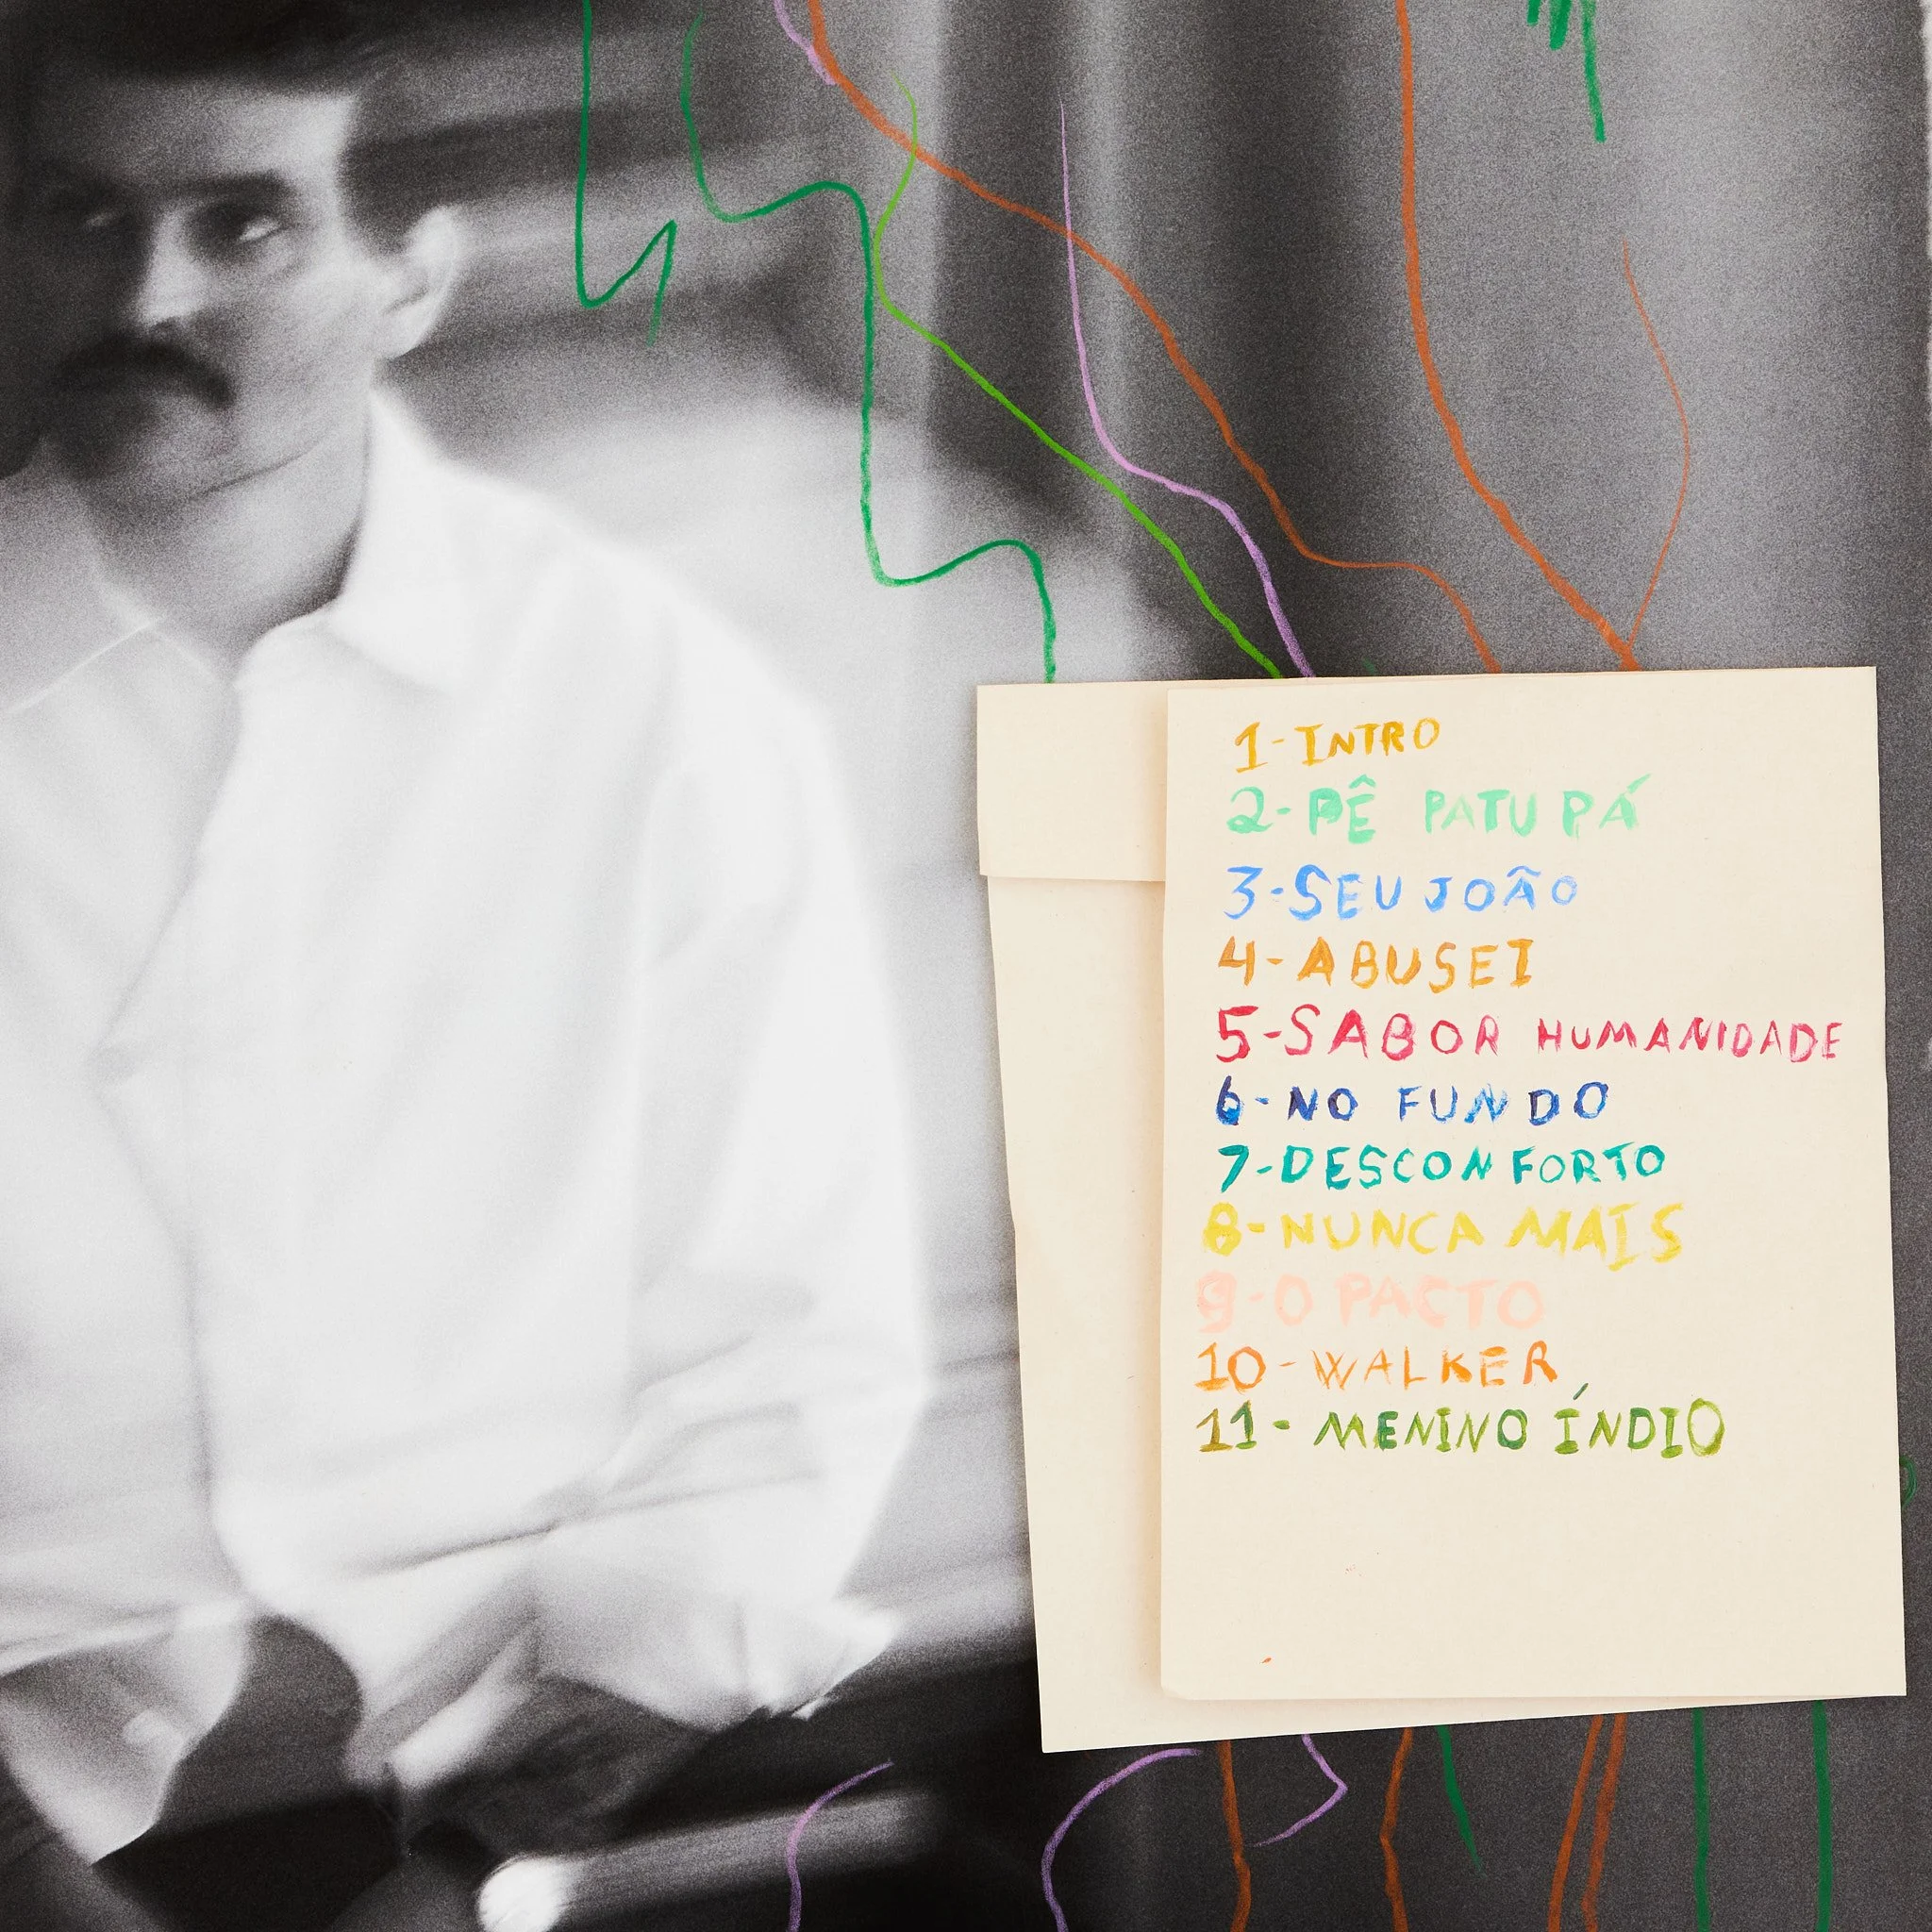 1-INTRO
2-PÊ PATU PÁ
3-SEU JOÃO
4-ABUSEI
5-SABOR HUMANIDADE
6-NO FUNDO
7-DESCONFORTO
8-NUNCA MAIS
9-O PACTO
10-WALKER
11-MENINO ÍNDIO